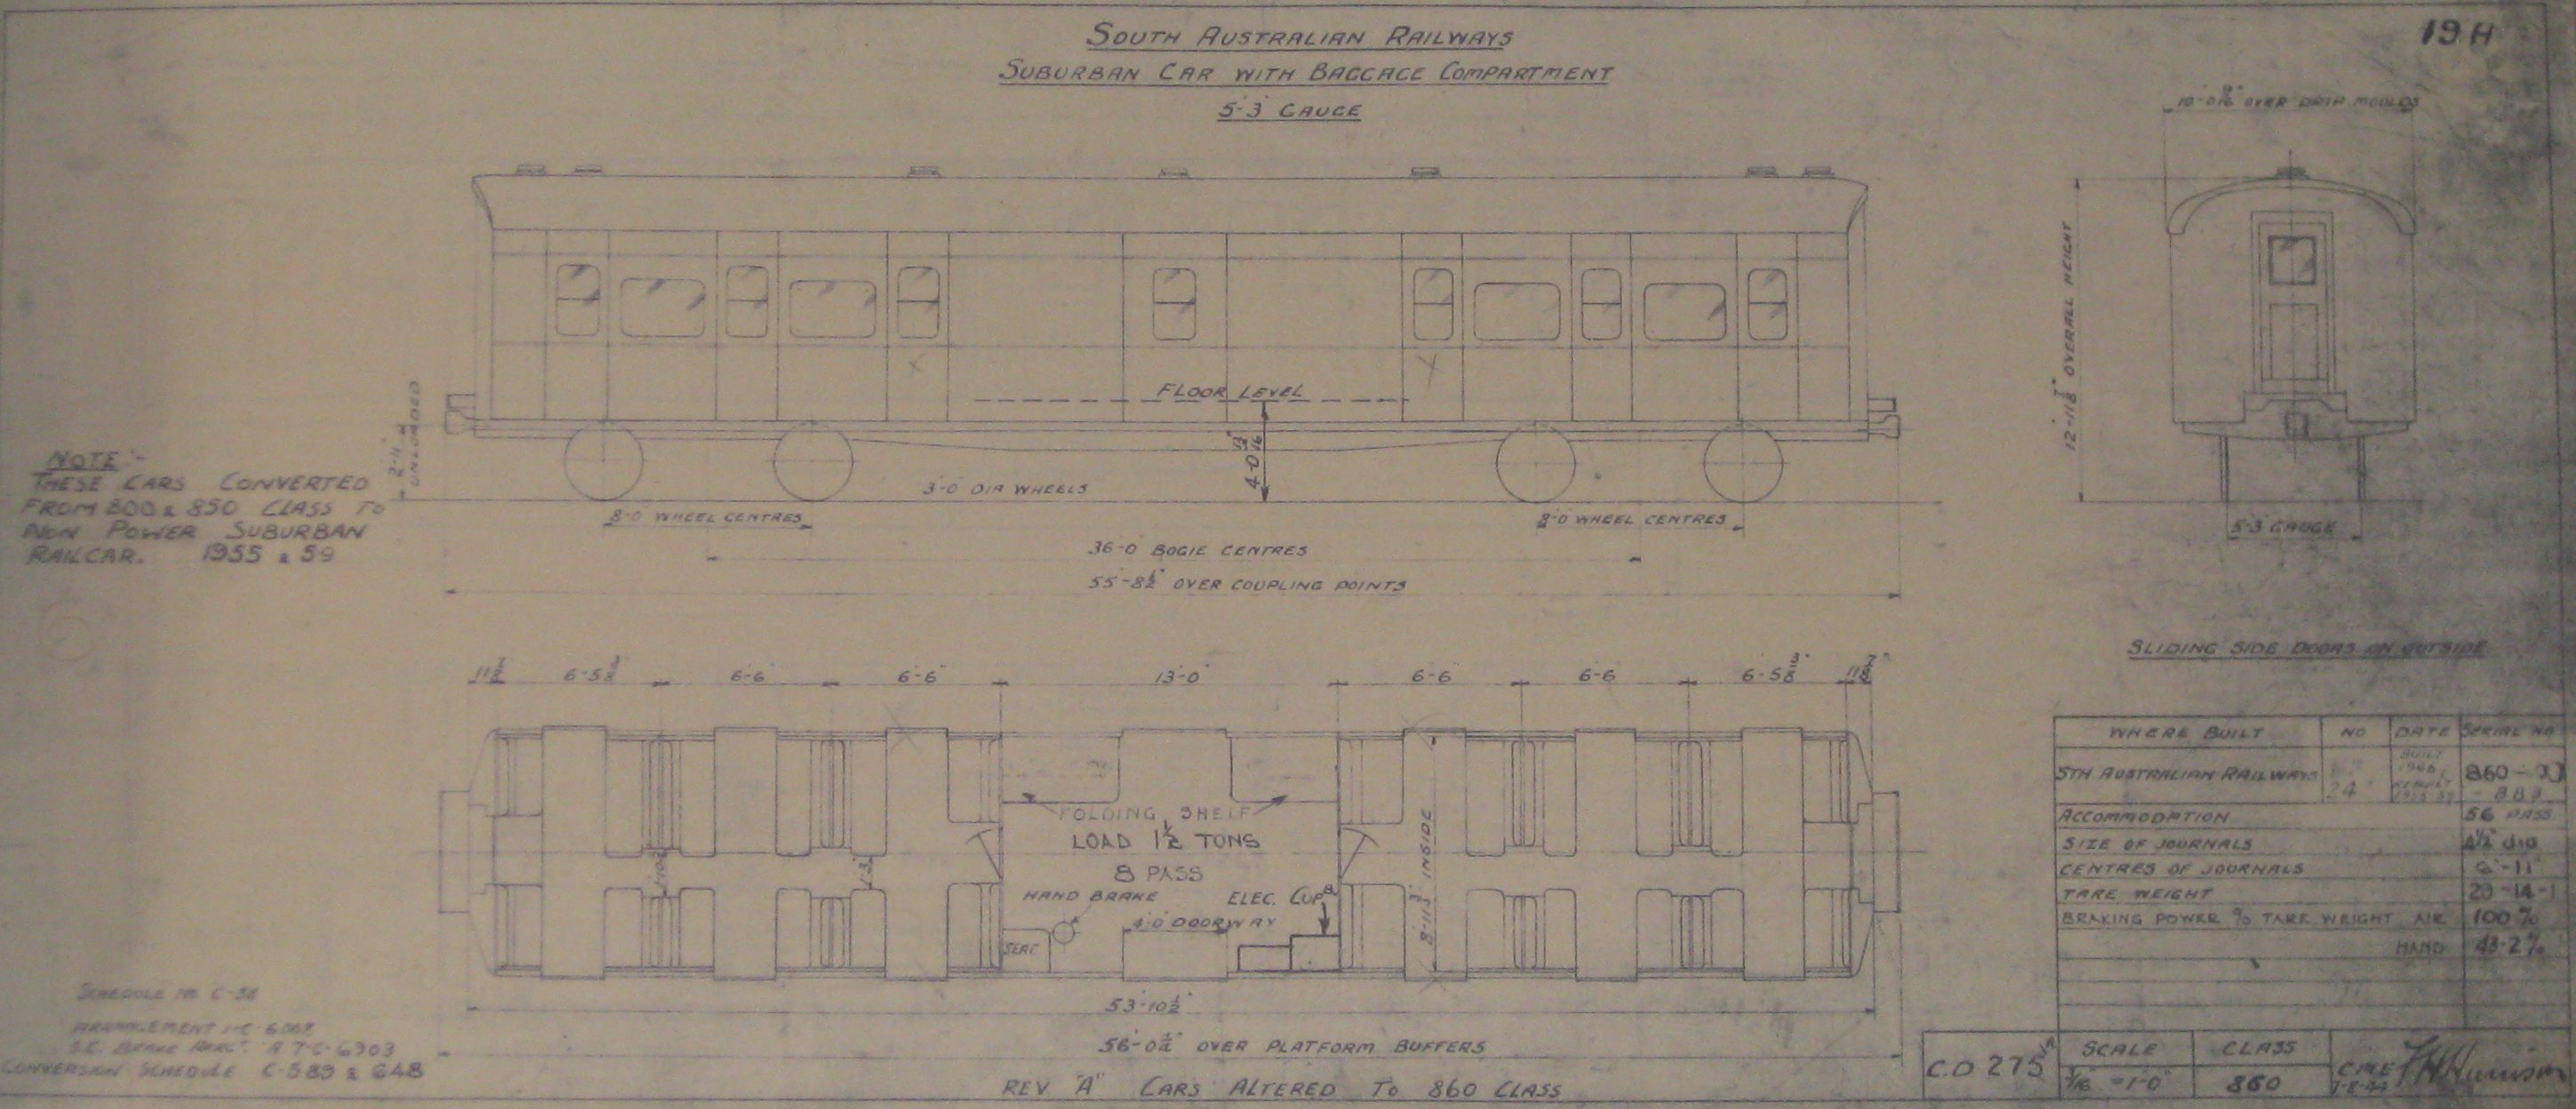 19 H
SOUTH AUSTRALIAN RAILWAYS
SUBURBAN CAR WITH BAGGAGE COMPARTMENT
5'-3" GAUGE
OVER DRIP MOULDS
12'-11⅞" OVERALL HEIGHT
5'-3" GAUGE
FLOOR LEVEL
4'-0 13/16"
UNLOADED
NOTE:-
THESE CARS CONVERTED
FROM 800 & 850 CLASS TO
NON POWER SUBURBAN
RAILCAR. 1955 & 59
3'-0" DIA WHEELS
8'-0" WHEEL CENTRES
8'-0" WHEEL CENTRES
36'-0" BOGIE CENTRES
55'-8½" OVER COUPLING POINTS
SLIDING SIDE DOORS ON OUTSIDE
11⅞" 6'-5⅜" 6'-6" 6'-6" 13'-0" 6'-6" 6'-6" 6'-5⅜" 11⅞"
FOLDING SHELF
LOAD 1½ TONS
8 PASS
HAND BRAKE
ELEC. CUPB
4'-0" DOORWAY
SEAT
8'-11¾" INSIDE
53'-10½"
OVER PLATFORM BUFFERS
REV "A" CARS ALTERED TO 860 CLASS
SCHEDULE NO C-38
ARRANGEMENT
CONVERSION SCHEDULE C-583 & 648
WHERE BUILT NO DATE SERIAL NO
STH AUSTRALIAN RAILWAYS 24 860
ACCOMMODATION 56 PASS
SIZE OF JOURNALS 4½" DIA
CENTRES OF JOURNALS 6'-11"
TARE WEIGHT
BRAKING POWER % TARE WEIGHT AIR 100%
HAND 43.2%
C.D 275 SCALE CLASS C.M.E
3/16" = 1'-0" 860